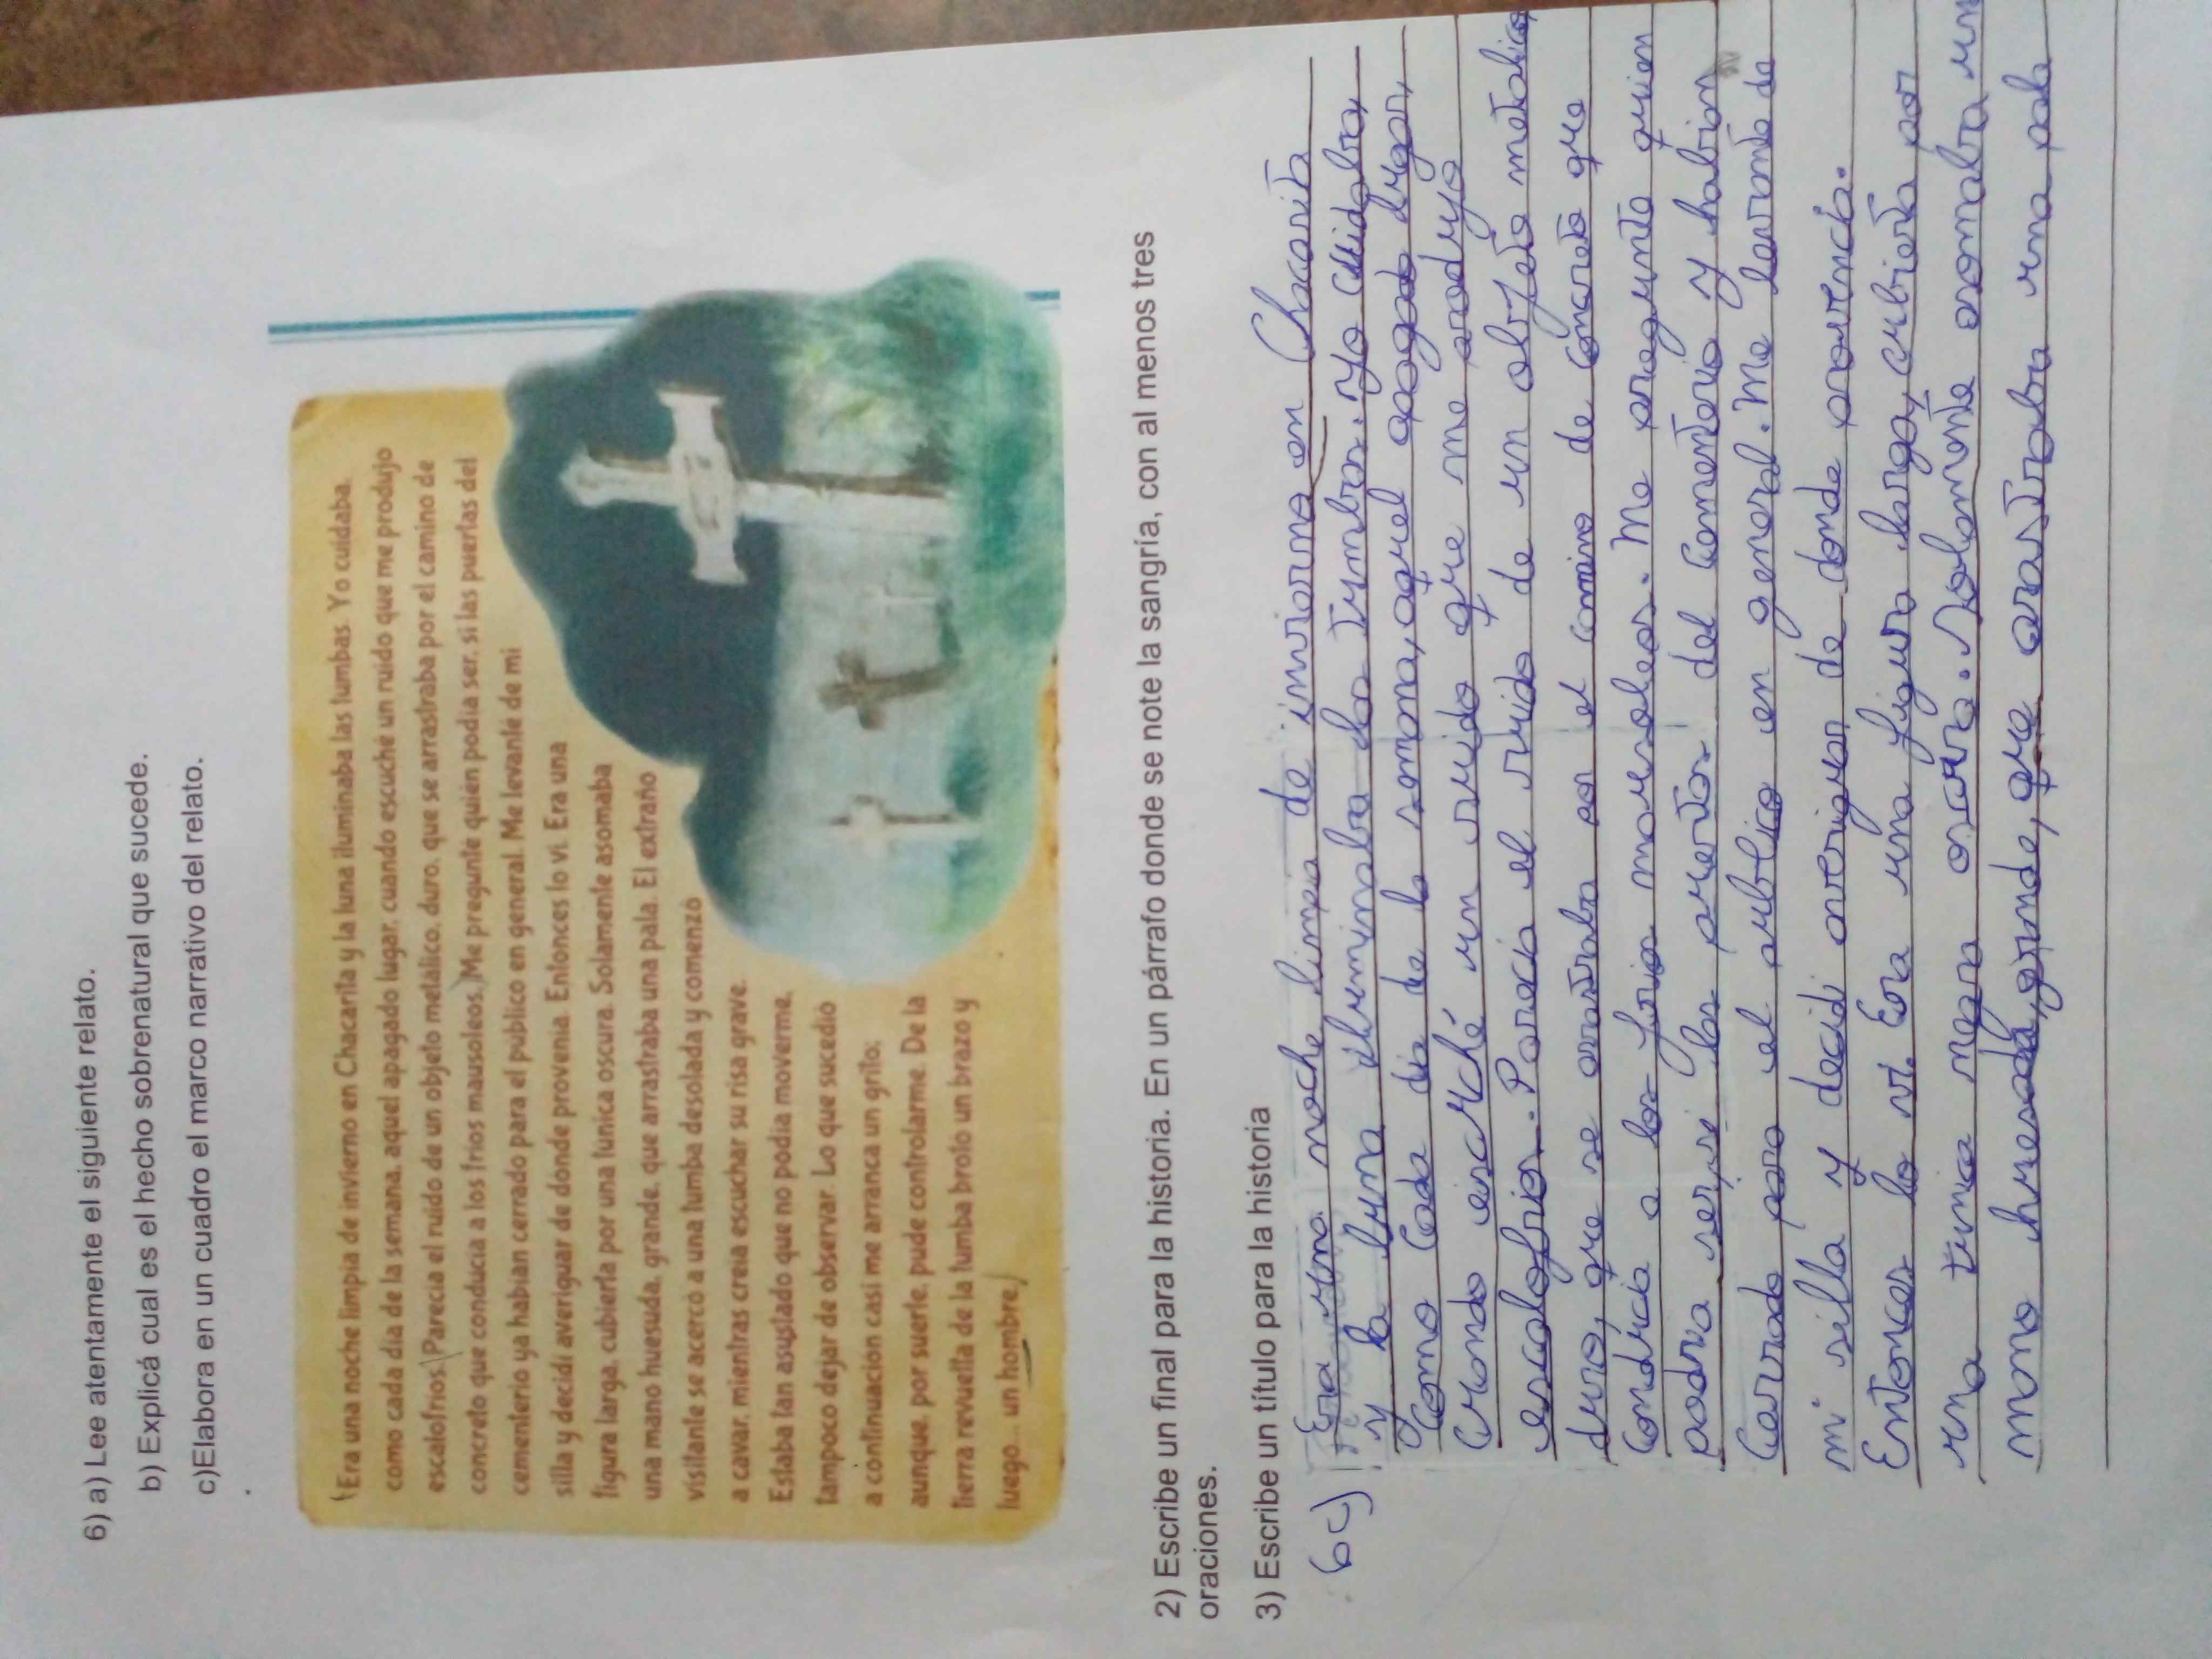 6) a) Lee atentamente el siguiente relato.
b) Explicá cual es el hecho sobrenatural que sucede.
c)Elabora en un cuadro el marco narrativo del relato.
Era una noche limpia de invierno en Chacarita y la luna iluminaba las tumbas. Yo cuidaba,
como cada día de la semana, aquel apagado lugar, cuando escuché un ruido que me produjo
escalofríos. Parecía el ruido de un objeto metálico, duro, que se arrastraba por el camino de
concreto que conducía a los fríos mausoleos. Me pregunté quién podía ser, si las puertas del
cementerio ya habían cerrado para el público en general. Me levanté de mi
silla y decidí averiguar de dónde provenía. Entonces lo vi. Era una
figura larga, cubierta por una túnica oscura. Solamente asomaba
una mano huesuda, grande, que arrastraba una pala. El extraño
visitante se acercó a una tumba desolada y comenzó
a cavar, mientras creía escuchar su risa grave.
Estaba tan asustado que no podía moverme,
tampoco dejar de observar. Lo que sucedió
a continuación casi me arranca un grito;
aunque, por suerte, pude controlarme. De la
tierra revuelta de la tumba brotó un brazo y
luego... un hombre.
2) Escribe un final para la historia. En un párrafo donde se note la sangría, con al menos tres
oraciones.
3) Escribe un título para la historia
6c) Era una noche limpia de invierno en Chacarita
y la luna iluminaba las tumbas. Yo cuidaba,
como cada día de la semana, aquel apagado lugar,
cuando escuché un ruido que me produjo
escalofrios. Parecía el ruido de un objeto metalico,
duro, que se arrastraba por el camino de concreto que
conducia a los frios mausoleos. Me pregunte quien
podria ser, si las puertas del cementerio y habian
cerrado para el publico en general. Me levante de
mi silla y decidi averiguar de donde provencia.
Entonces lo vi. Era una figura larga, cubierta por
una tunica negra oscura. Solamente asomaba un
mano huesuda, grande, que arrastraba una pala